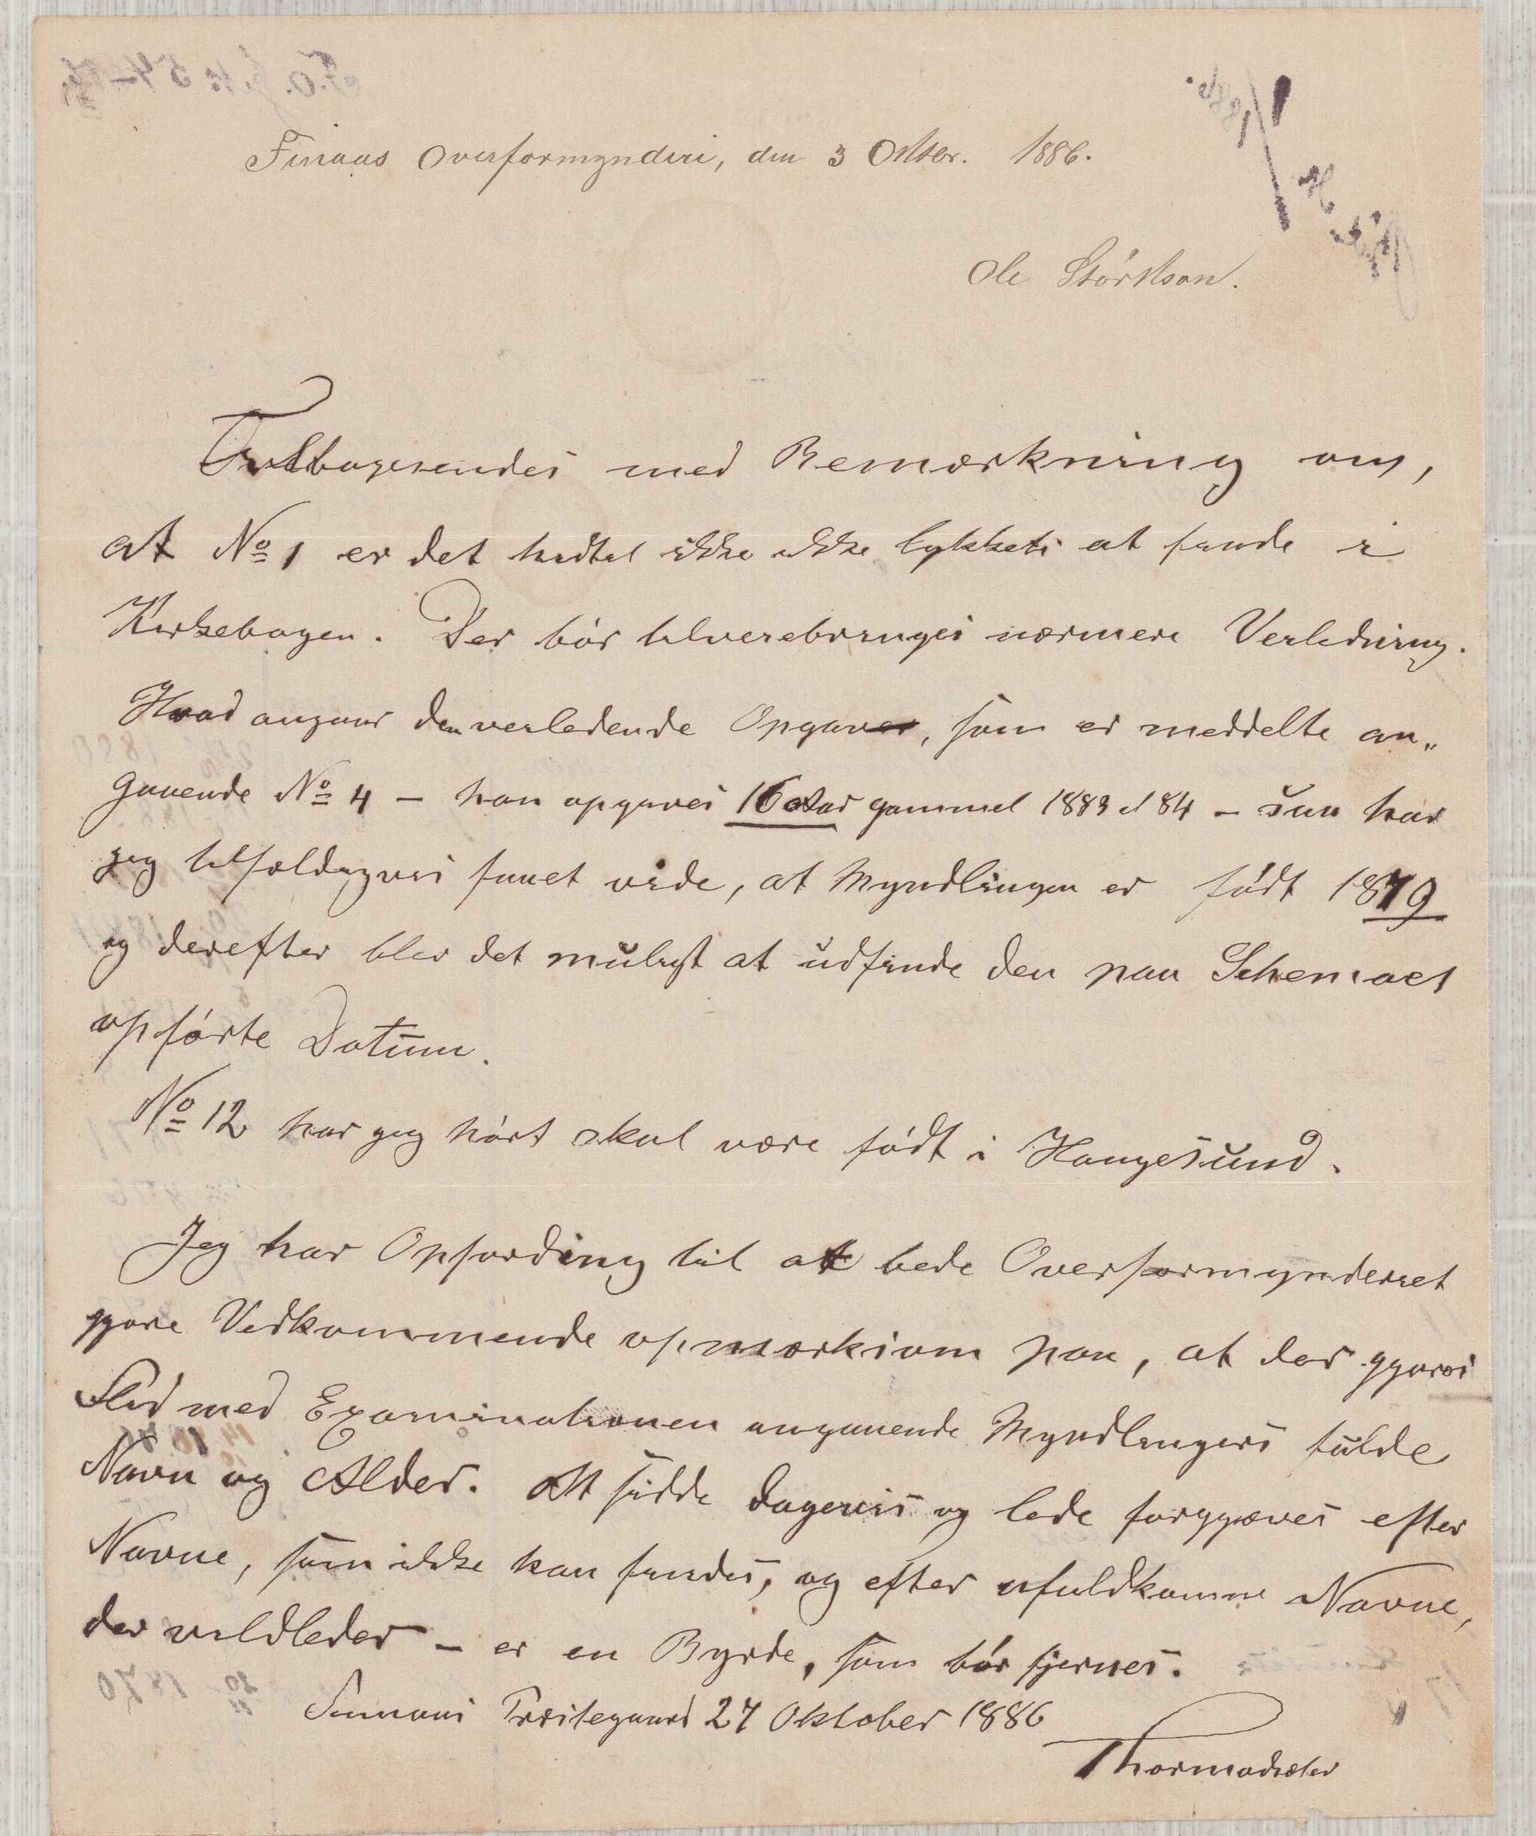 Finaas Overformynderi, den 3 Oktbr. 1886.
Ole Störkson.
Tilbagesendes med Bemærkning om,
at No 1 er det hidtil ikke ikke lykkets at finde i
Kirkebogen. Der bör tilveiebringes nærmere Veiledning.
Hvad angaar den veiledende Opgave, som er meddelte an„
gaaende No 4 – han opgaves 16 Aar gammel 1883 el 84 – saa har
jeg tilfældigvis faaet vide, at Myndlingen er födt 1879
og derefter blev det muligt at udfinde den paa Schemaet
opförte Datum.
No 12 har jeg hört skal være födt i Haugesund.
Jeg har Opfording til at bede Overformynderiet
gjøre Vedkommende opmærksom paa, at der gjøres
Flid med Examinationen angaaende Myndlingers fulde
Navn og Alder. At sidde dagevis og lede forgjæves efter
Navne, som ikke kan findes, og efter ufuldkomne Navne,
der vildleder – er en Byrde, som bör fjernes.
Finnaas Præstegaard 27 Oktober 1886
Thormodsæter